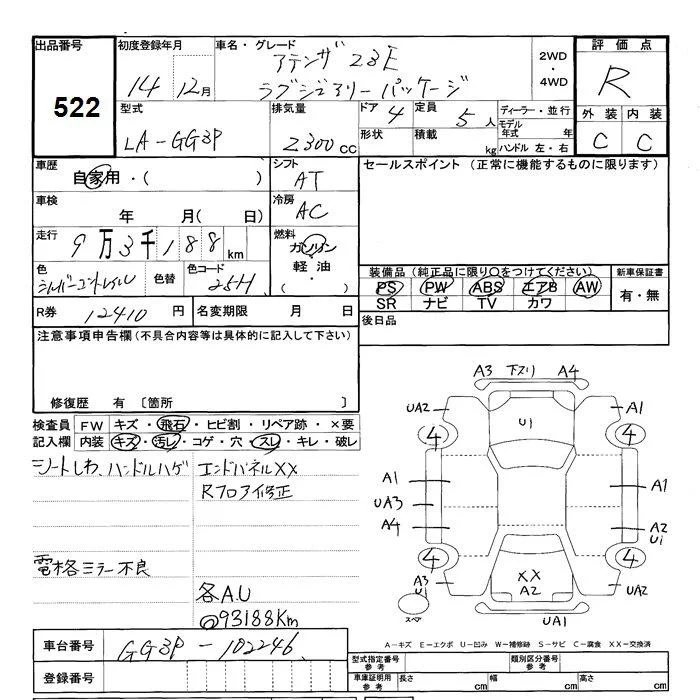 出品番号
522
初度登録年月
14 12月
車名・グレード
アテンザ 23E
ラグジュアリーパッケージ
2WD
・
4WD
評価点
R
外装 内装
C C
型式
LA-GG3P
排気量
2300cc
ドア 4
形状
定員 5人
積載 kg
ディーラー・並行
モデル年式 年
ハンドル 左・右
車歴
自家用・( )
シフト
AT
セールスポイント (正常に機能するものに限ります)
車検
年 月( 日)
冷房
AC
走行
9万3千188km
燃料
ガソリン
軽油
( ・ )
色
シルバー
色替
色コード
25H
装備品(純正品に限り○をつけてください)
PS PW ABS エアB AW
SR ナビ TV カワ
新車保証書
有・無
R券 12410円
名変期限 月 日
後日品
注意事項申告欄(不具合内容等は具体的に記入して下さい)
修復歴 有 〔箇所 〕
検査員記入欄
FW キズ・飛石・ヒビ割・リペア跡・×要
内装 キズ・汚レ・コゲ・穴・スレ・キレ・破レ
シートしわ、ハンドルハゲ
エンドパネルXX
Rフロア修正
電格ミラー不良
各A.U
@93188Km
A3 下スリ A4
UA2 U1 A1
4 4
A1 A1
UA3
A4 A2
U1
4 4
A3
U1 XX
A2 UA2
スペア
UA1
A-キズ E-エクボ U-凹み W-補修跡 S-サビ C-腐食 XX-交換済
車台番号 GG3P-102246
登録番号
型式指定番号
参考
類別区分番号
参考
車庫証明用
参考
長さ cm 幅 cm 高さ cm